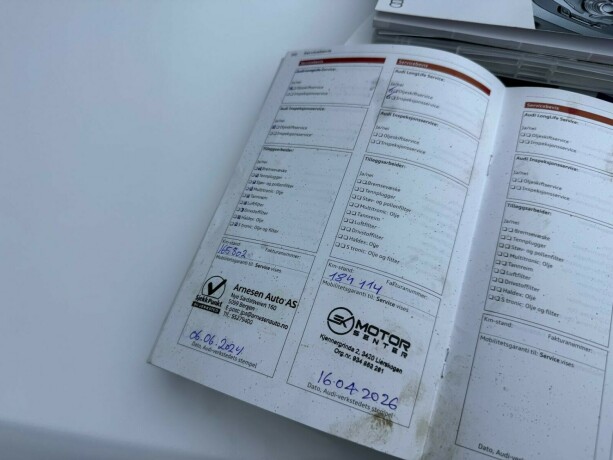 Servicebevis
Audi LongLife Service:
Oljeskiftservice
Inspeksjonsservice
Audi Inspeksjonsservice:
Oljeskiftservice
Inspeksjonsservice
Tilleggsarbeider:
Bremsevæske
Tennplugger
Støv- og pollenfilter
Multitronic: Olje
Tannreim
Luftfilter
Drivstoffilter
Haldex: Olje
S tronic: Olje og filter
Km-stand:
Fakturanummer:
165802
Mobilitetsgaranti til: Service vises
Sjekk Punkt
Arnesen Auto AS
Nye Sædalsveien 160
5099 Bergen
E-post: jpa@arnesenauto.no
06.06.2024
Dato, Audi-verkstedets stempel
Servicebevis
Audi LongLife Service
Oljeskiftservice
Inspeksjonsservice
Audi Inspeksjonsservice:
Ja/nei
Oljeskiftservice
Inspeksjonsservice
Tilleggsarbeider:
Ja/nei
Bremsevæske
Tennplugger
Støv- og pollenfilter
Multitronic: Olje
Tannreim
Luftfilter
Drivstoffilter
Haldex: Olje
S tronic: Olje og filter
Km-stand:
Fakturanummer:
184 114
Mobilitetsgaranti til: Service vises
SK MOTOR
SENTER
Kjennergrinda 2, 3420 Lierskogen
16.04.2026
Dato, Audi-verkstedets stempel
Servicebevis
Audi LongLife Service:
Ja/nei
Oljeskiftservice
Inspeksjonsservice
Audi Inspeksjonsservice:
Ja/nei
Oljeskiftservice
Inspeksjonsservice
Tilleggsarbeider:
Ja/nei
Bremsevæske
Tennplugger
Støv- og pollenfilter
Multitronic: Olje
Tannreim
Luftfilter
Drivstoffilter
Haldex: Olje
S tronic: Olje og filter
Km-stand:
Fakturanummer:
Mobilitetsgaranti til: Service vises
Dato, Audi-verkstedets